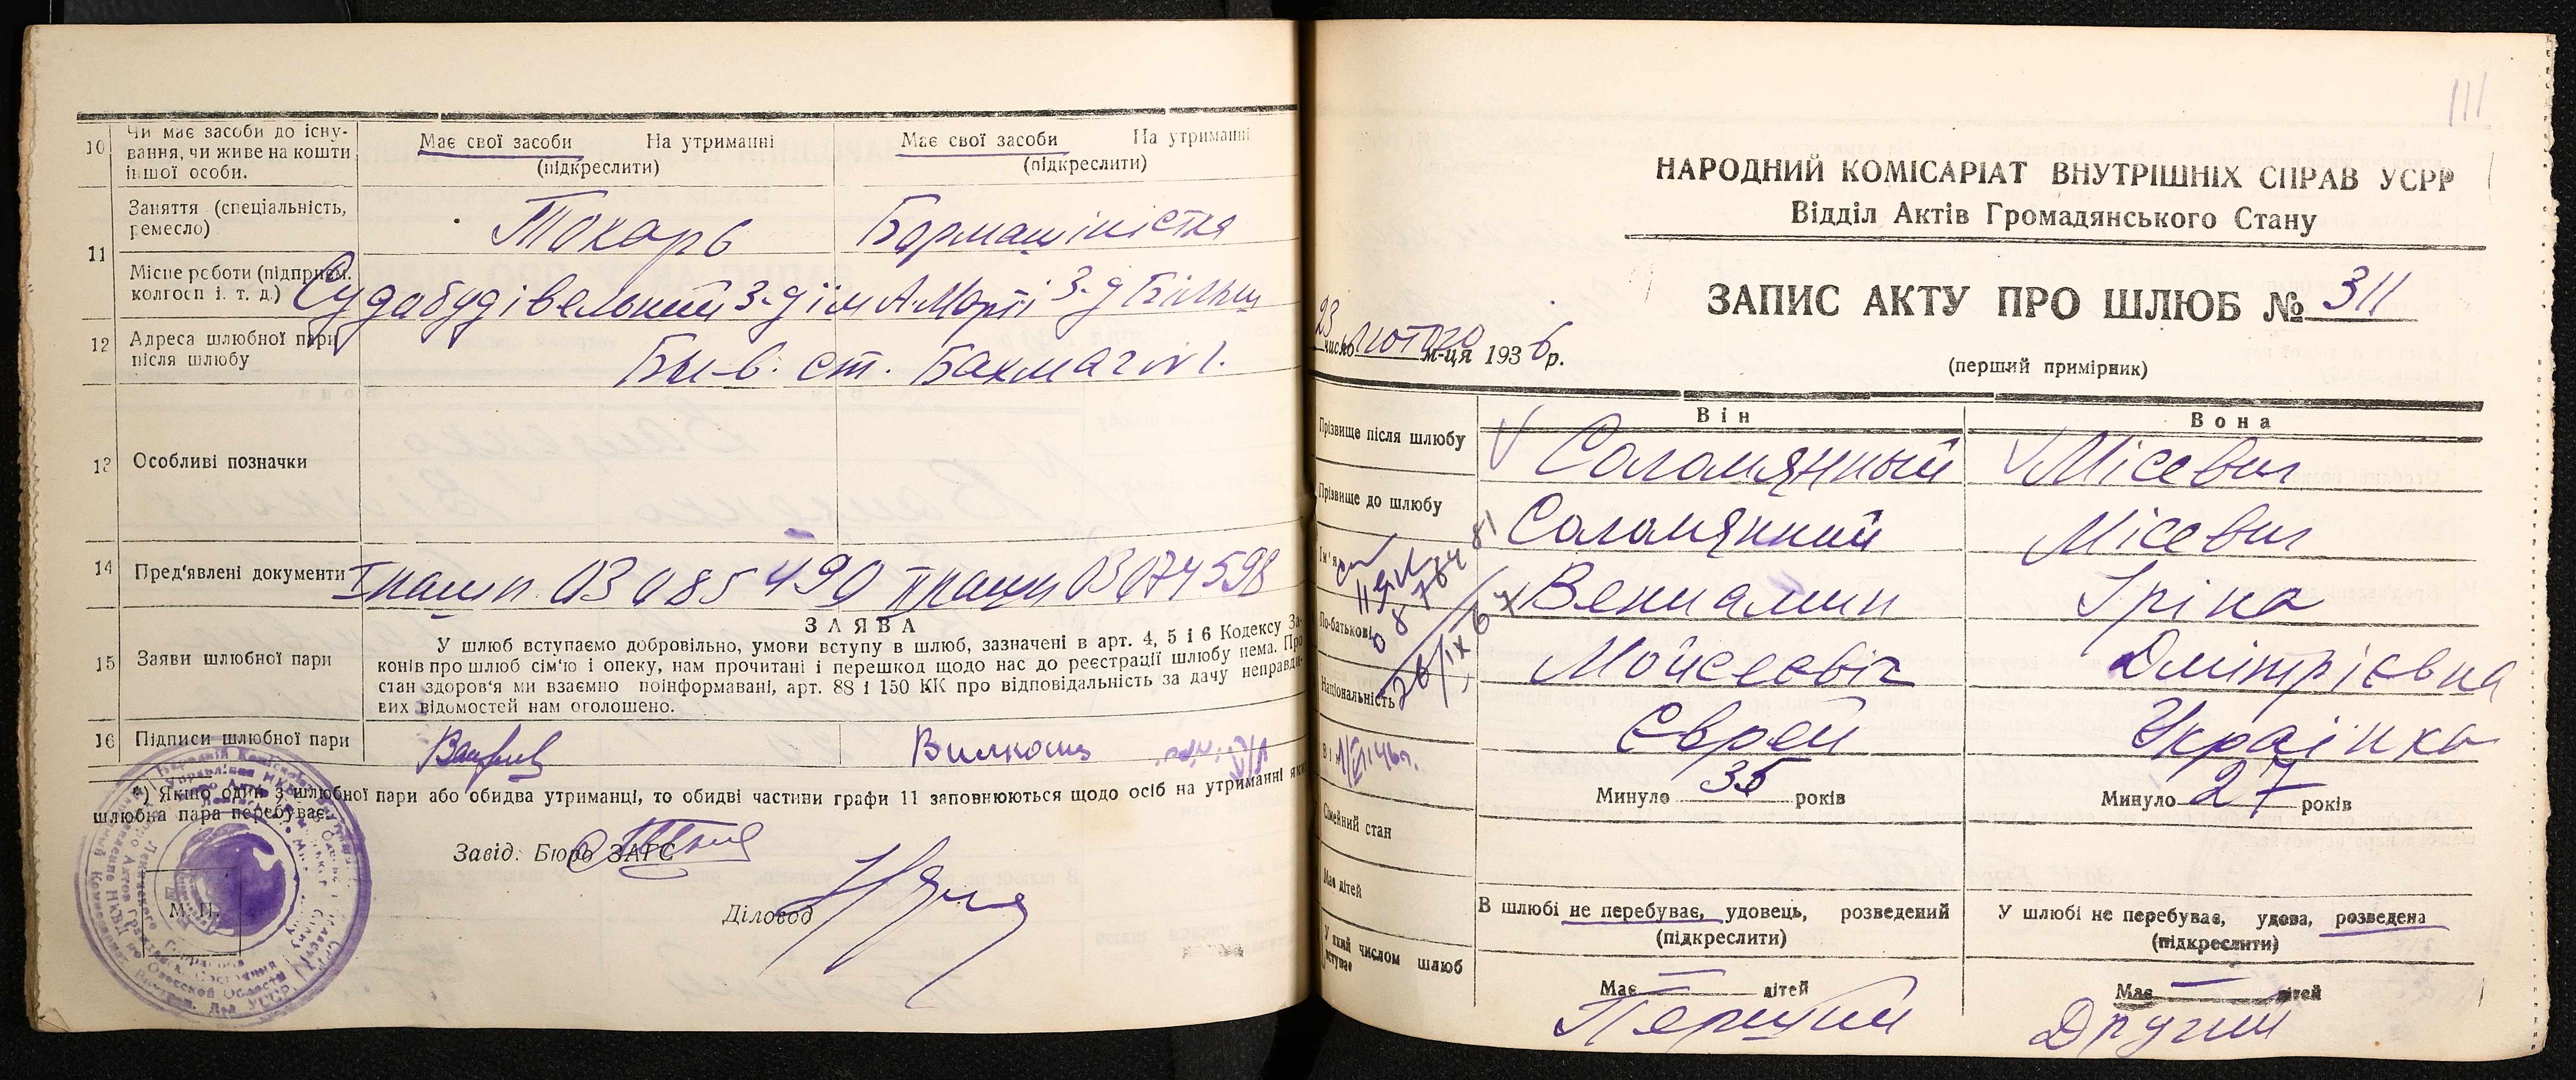 10
Чи має засоби до існу-
вання, чи живе на кошти
іншої особи.
Має свої засоби На утриманні
(підкреслити)
Має свої засоби На утриманні
(підкреслити)
11
Заняття (спеціальність,
ремесло)
Токарь
Бормашіністка
Місце роботи (підприєм.
колгосп і. т. д.)
Судабудівельний з-д ім А Марті з-д Більш
12
Адреса шлюбної пари
після шлюбу
ст. Бахмаг №1.
13
Особливі позначки
14
Пред'явлені документи
І пашп. 03085490 ІІ пашп 03074598
15
Заяви шлюбної пари
ЗАЯВА
У шлюб вступаємо добровільно, умови вступу в шлюб, зазначені в арт. 4, 5 і 6 Кодексу За-
конів про шлюб сім'ю і опеку, нам прочитані і перешкод щодо нас до реєстрації шлюбу нема. Про
стан здоров'я ми взаємно поінформавані, арт. 88 і 150 КК про відповідальність за дачу неправди-
вих відомостей нам оголошено.
16
Підписи шлюбної пари
*) Якщо один з шлюбної пари або обидва утриманці, то обидві частини графи 11 заповнюються щодо осіб на утриманні яких
шлюбна пара перебуває.
Завід. Бюро ЗАГС
М. П.
Діловод
111
НАРОДНИЙ КОМІСАРІАТ ВНУТРІШНІХ СПРАВ УСРР
Відділ Актів Громадянського Стану
ЗАПИС АКТУ ПРО ШЛЮБ № 311
23 число лютого м-ця 1936 р.
(перший примірник)
Він
Вона
Прізвище після шлюбу
Соломянный
Місевич
Прізвище до шлюбу
Соломянний
Місевич
Ім'я
Вениамин
Іріна
По-батькові
Мойсеєвіч
Дмітрієвна
Національність
Єврей
Українка
Вік
Минуло 35 років
Минуло 27 років
Сімейний стан
В шлюбі не перебуває, удовець, розведений
(підкреслити)
У шлюбі не перебуває, удова, розведена
(підкреслити)
Має дітей
Має — дітей
Має — дітей
У який числом шлюб
вступає
Перший
Другий